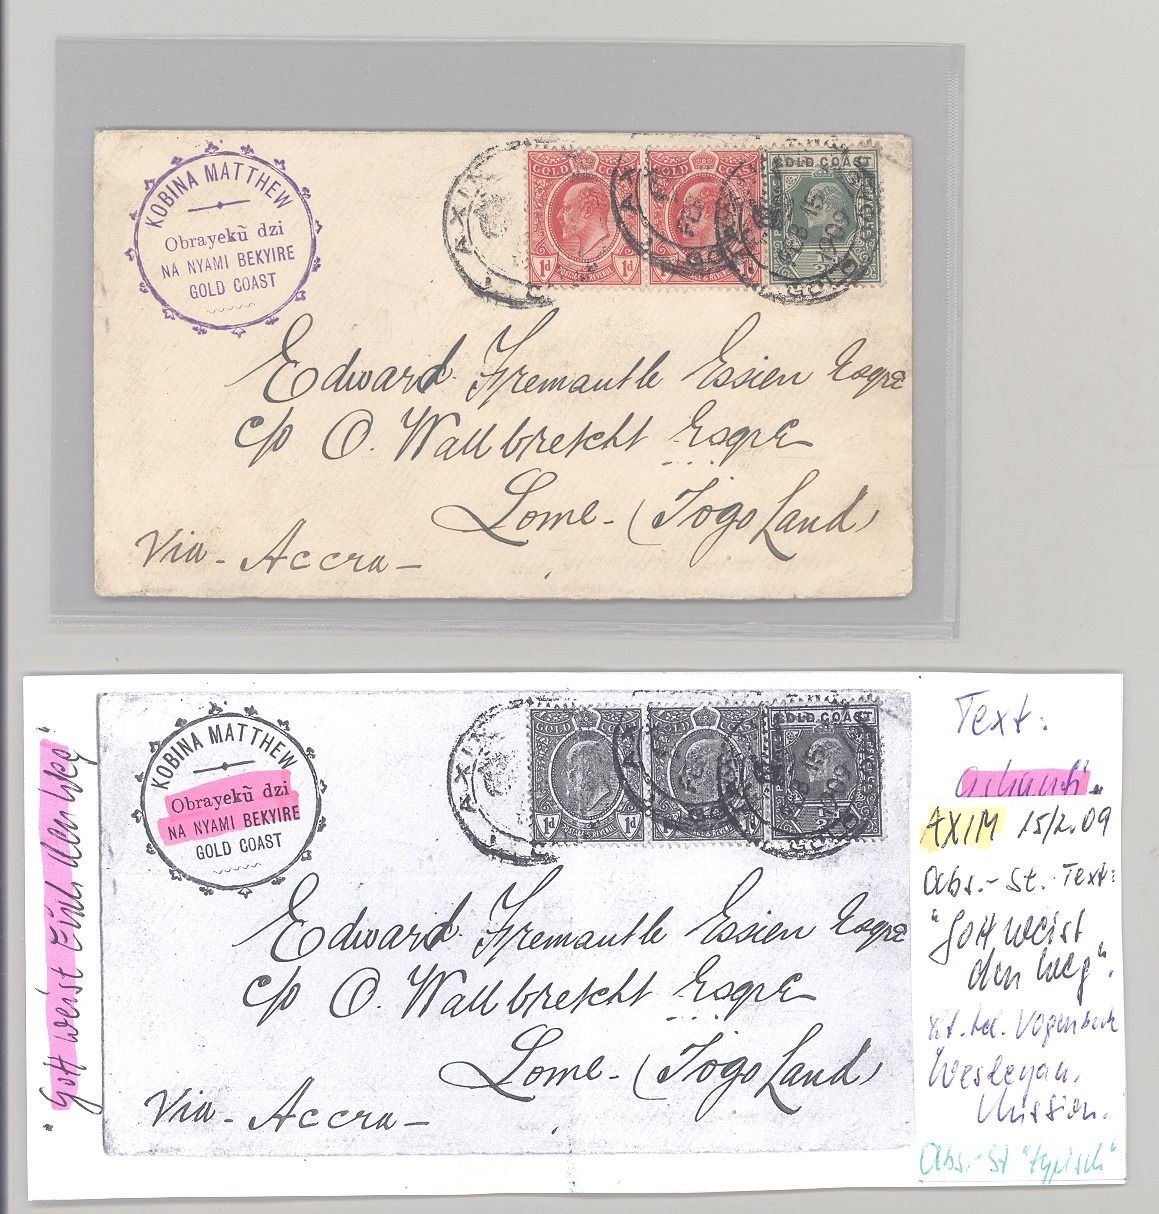 KOBINA MATTHEW
Obrayekũ dzi
NA NYAMI BEKYIRE
GOLD COAST
AXIM
GOLD COAST
1d
GOLD COAST
FEB 15 1909
Edward Fremantle Essien Esqre
c/o O. Wallbretcht Esqre
Lome - (Togo Land)
Via - Accra -
KOBINA MATTHEW
Obrayekũ dzi
NA NYAMI BEKYIRE
GOLD COAST
AXIM
1d
GOLD COAST
Edward Fremantle Essien Esqre
c/o O. Wallbretcht Esqre
Lome - (Togo Land)
Via - Accra -
Text:
ashanti
AXIM 15/2.09
Abs.-St.-Text:
"Gott weist
den Weg".
Wesleyan.
Mission.
Abs.-St "typisch"